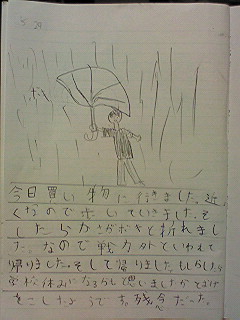 5.29
ボキッ
今日買い物に行きました。近
くなので歩いていきました。そ
したらかさがボキと折れまし
た。なので戦力外といわれて
帰りました。そして帰りました。もしかしたら
学校休みになるかもって思いましたが
きこしたようです。残念だった。